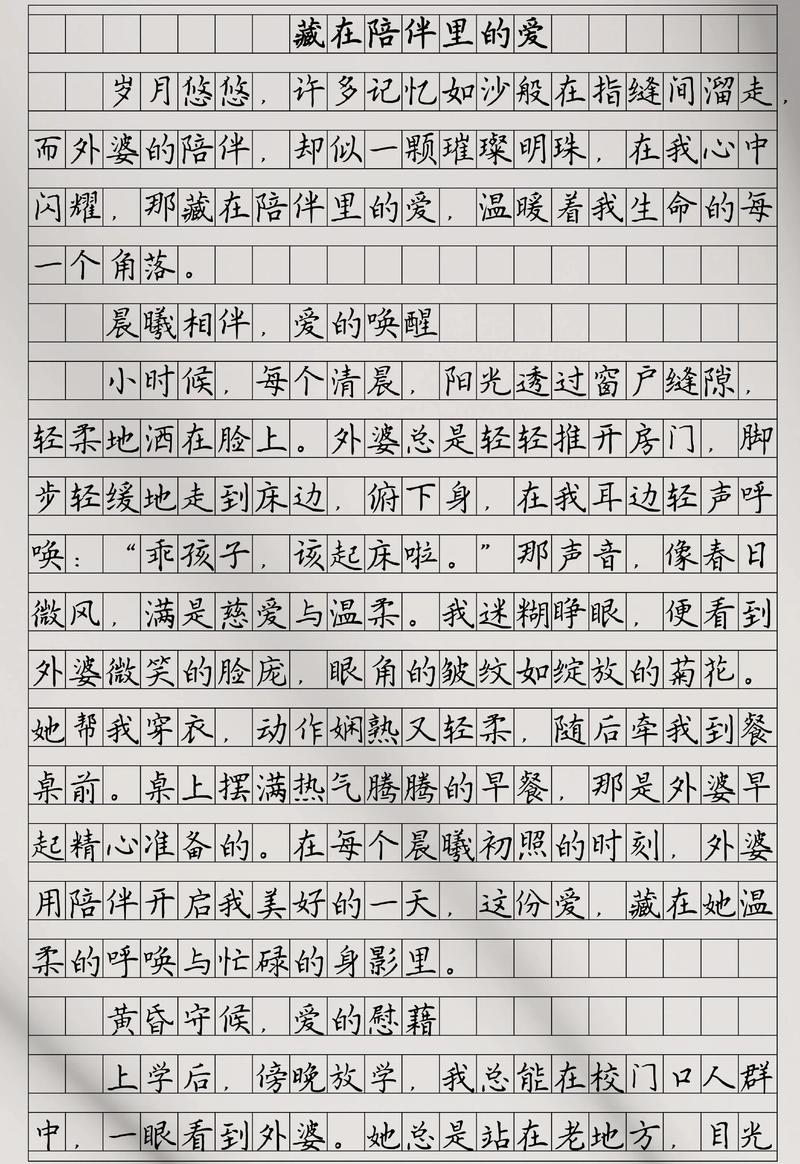 藏在陪伴里的爱
岁月悠悠，许多记忆如沙般在指缝间溜走，
而外婆的陪伴，却似一颗璀璨明珠，在我心中
闪耀，那藏在陪伴里的爱，温暖着我生命的每
一个角落。
晨曦相伴，爱的唤醒
小时候，每个清晨，阳光透过窗户缝隙，
轻柔地洒在脸上。外婆总是轻轻推开房门，脚
步轻缓地走到床边，俯下身，在我耳边轻声呼
唤：“乖孩子，该起床啦。”那声音，像春日
微风，满是慈爱与温柔。我迷糊睁眼，便看到
外婆微笑的脸庞，眼角的皱纹如绽放的菊花。
她帮我穿衣，动作娴熟又轻柔，随后牵我到餐
桌前。桌上摆满热气腾腾的早餐，那是外婆早
起精心准备的。在每个晨曦初照的时刻，外婆
用陪伴开启我美好的一天，这份爱，藏在她温
柔的呼唤与忙碌的身影里。
黄昏守候，爱的慰藉
上学后，傍晚放学，我总能在校门口人群
中，一眼看到外婆。她总是站在老地方，目光